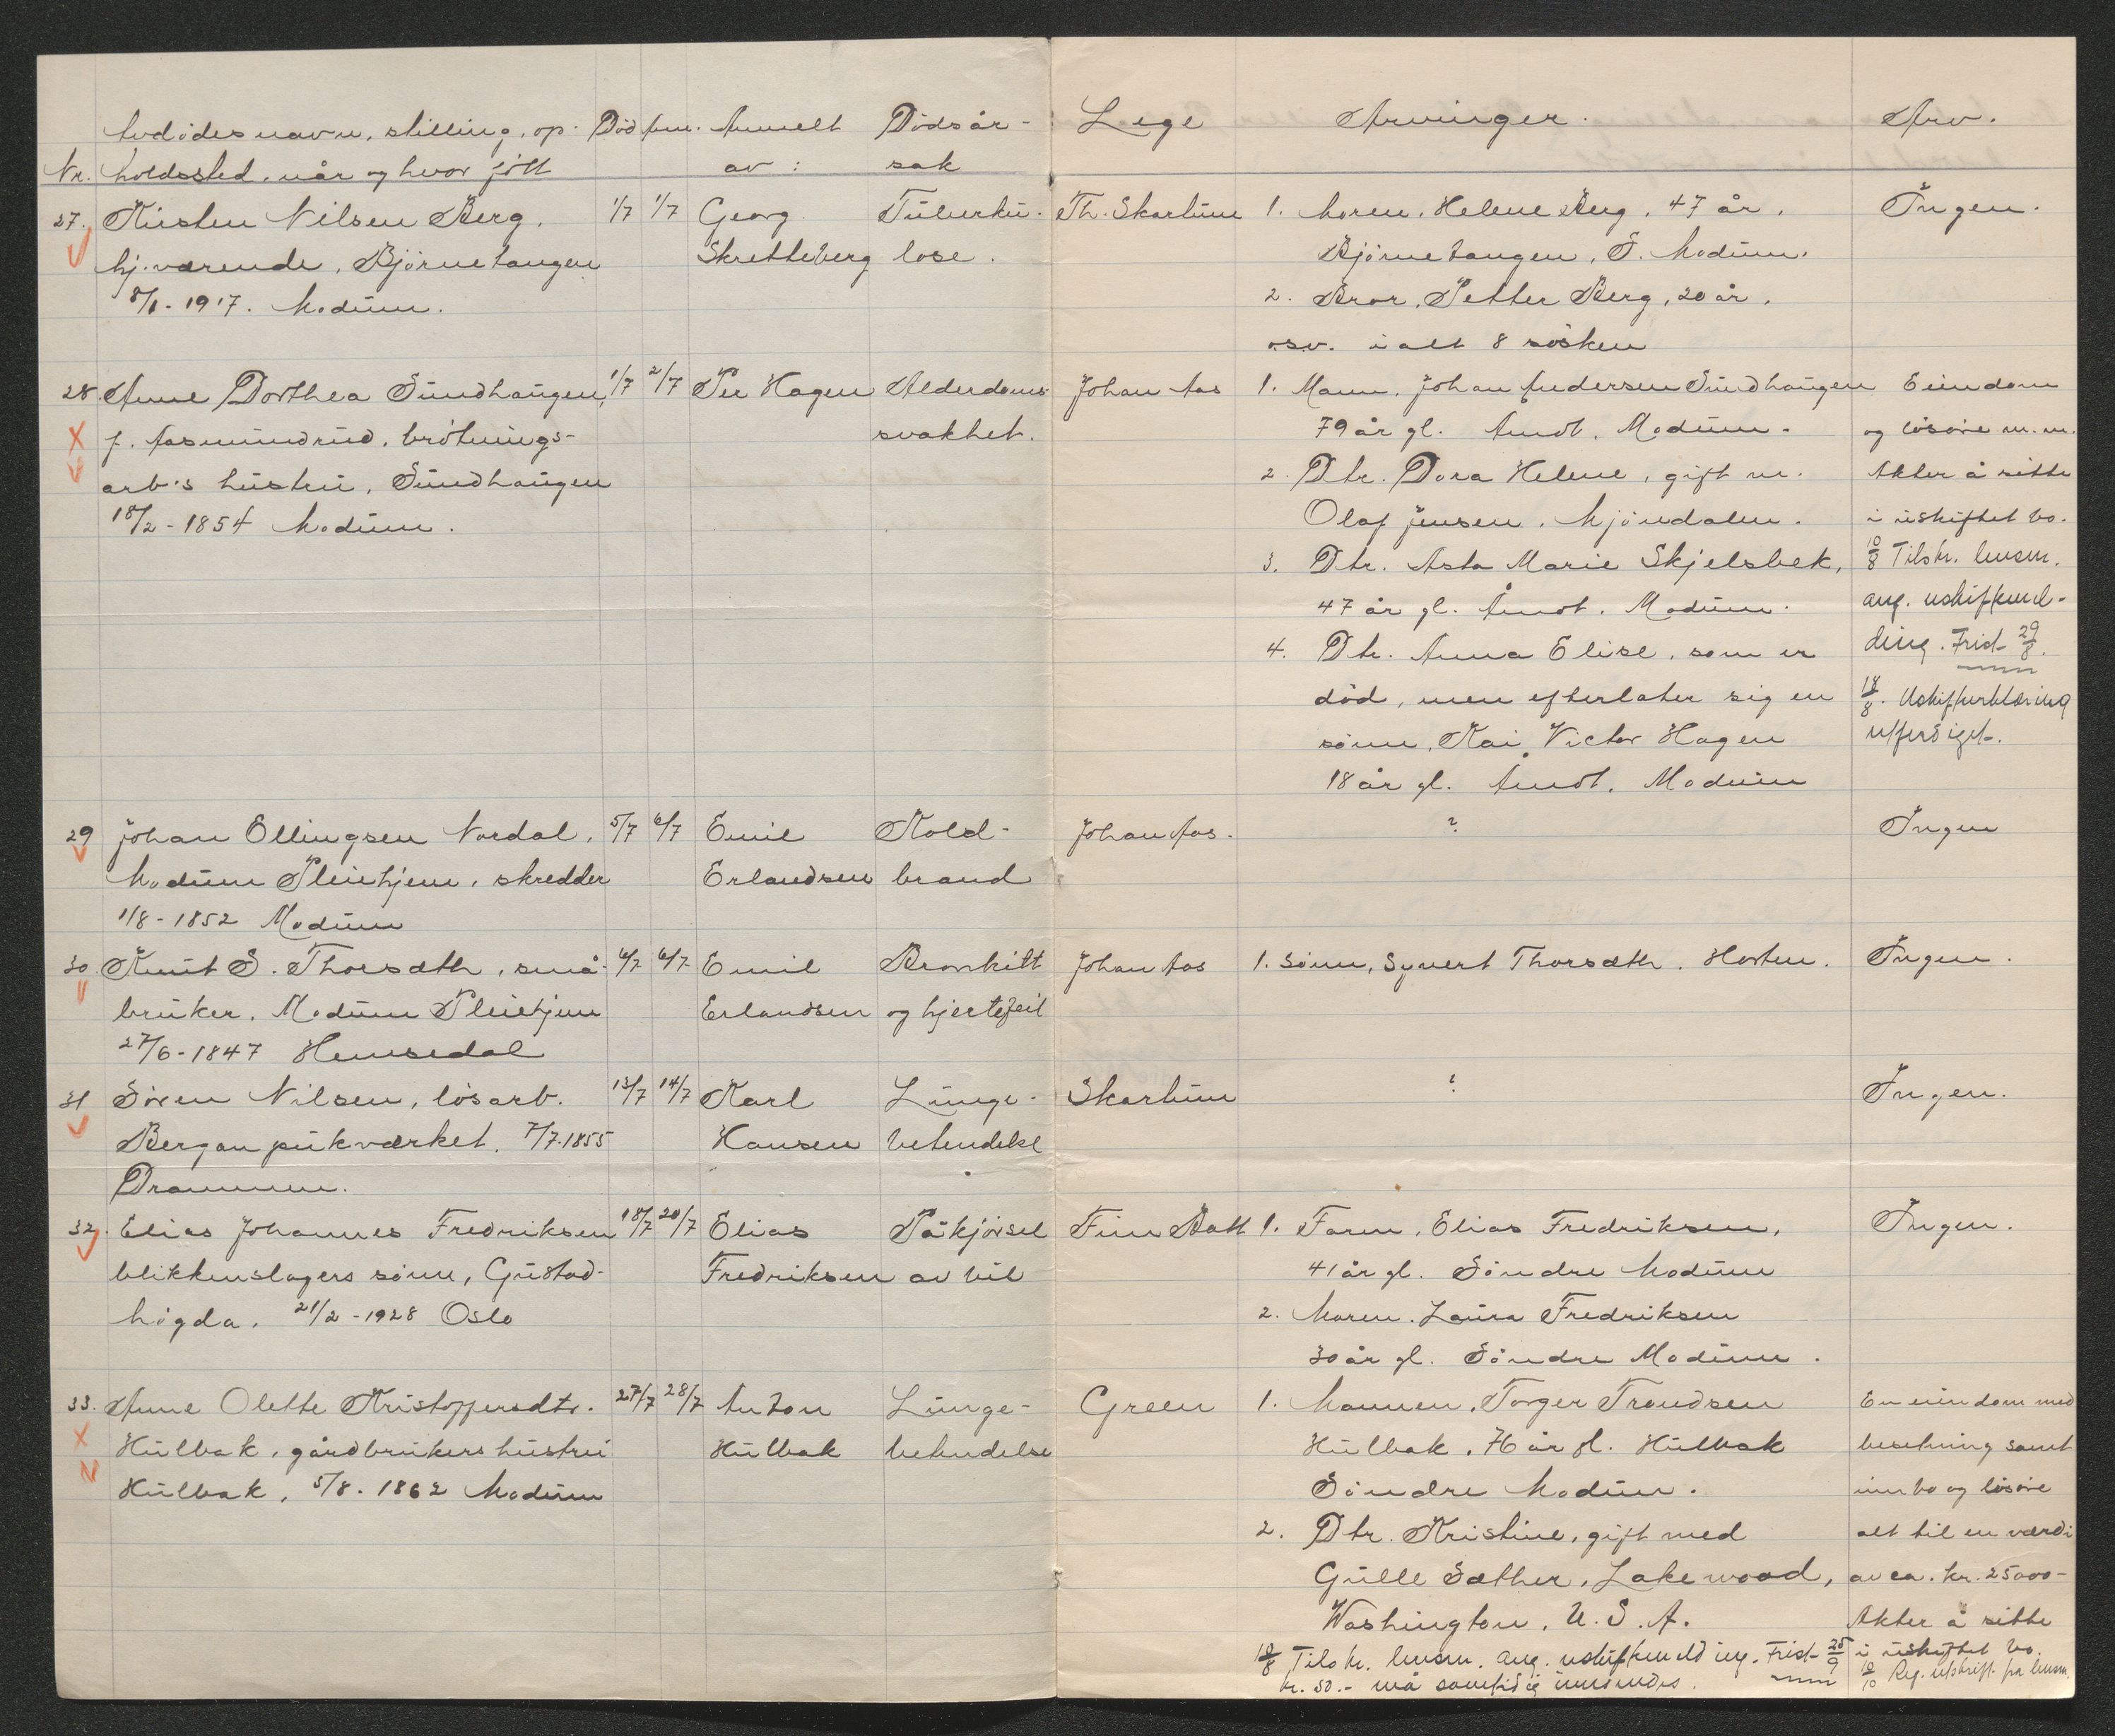 Avdødes navn, stilling, op- Död Anm. Anmelt Dödsår- Lege Arvinger. Arv.
Nr. holdssted. når og hvor fött av: sak
27. Kirsten Nilsen Berg. 1/7 1/7 Georg Tuberku- Th. Skarhum 1. Moren, Helene Berg, 47 år, Ingen.
hj.værende, Björnetangen Skretteberg lose. Björnetangen, S. Modum.
8/1-1917. Modum. 2. Bror, Petter Berg, 20 år.
osv. i alt 8 søsken
28. Anne Dorthea Sundhaugen, 1/7 2/7 Per Hagen Alderdoms- Johan Aas 1. Mann, Johan Andersen Sundhaugen Eiendom
f. Aasmundrud, brötnings- svakhet. 79 år gl. Åmot, Modum. og lösöre m.m.
arb's hustru, Sundhaugen 2. Dtr. Dora Helene, gift m. Akter å sitte
18/2-1854 Modum. Olaf Jensen, Mjöndalen. i uskiftet bo.
3. Dtr. Asta Marie Skjelsbek, 10/8 Tilskr. lensm.
47 år gl. Åmot. Modum. ang. uskiftemel-
4. Dtr. Anna Elise, som er ding. Frist 29/8.
död, men efterlater sig en 18/8. Uskifteerklæring
sönn, Kai Victor Hagen utferdiget.
18 år gl. Åmot, Modum
29 Johan Ellingsen Nordal, 5/7 6/7 Emil Kold- Johan Aas. ? Ingen
Modum Pleiehjem, skredder Erlandsen brand
1/8-1852 Modum
30. Knut S. Thorsæth, små- 6/7 6/7 Emil Bronkitt Johan Aas 1. Sönn, Syvert Thorsæth. Horten. Ingen.
bruker, Modum Pleiehjem Erlandsen og hjertefeil
27/6-1847 Hemsedal
31 Sören Nilsen, lösarb. 13/7 14/7 Karl Lunge- Skarhum ? Ingen.
Bergan pukværket. 7/7-1855 Hansen betendelse
Drammen.
32. Elias Johannes Fredriksen 18/7 20/7 Elias Påkjörsel Finn Batt 1. Faren, Elias Fredriksen, Ingen.
blikkenslagers sönn, Gustad- Fredriksen av bil 41 år gl. Söndre Modum
högda. 21/2-1928 Oslo 2. Moren. Laura Fredriksen
30 år gl. Söndre Modum.
33. Anne Olette Kristoffersdtr. 27/7 28/7 Anton Lunge- Green 1. Mannen, Torger Trondsen En eiendom med
Hulbak, gårdbrukers hustru Hulbak betendelse Hulbak, 76 år gl. Hulbak besetning samt
Hulbak, 5/8-1862 Modum Söndre Modum. innbo og lösöre
2. Dtr. Kristine, gift med alt til en værdi
Gulle Sæther, Lakewood, av ca. kr. 25000-
Washington, U.S.A. Akter å sitte
18/8 Tilskr. lensm. ang. uskiftemelding. Frist 25/9 i uskiftet bo.
kr. 50.- må samtidig innsendes. 10/10 Beg. utskrift fra lensm.